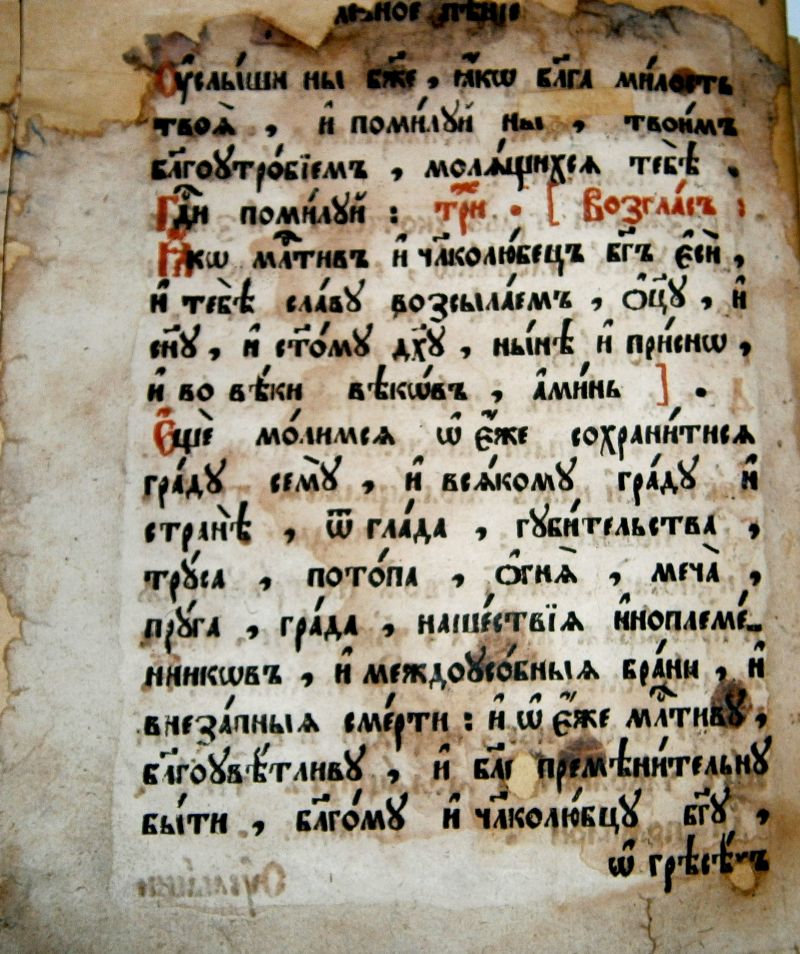 пѣнїе
Оу҆слы́ши ны̀ бж҃е , ꙗ҆́кѡ бл҃га ми́лость
твоѧ̀ , и҆ поми́лꙋй ны̀ , твои́мъ
бл҃гоꙋтро́бїемъ , молѧ́щихсѧ тебѣ̀ .
Гдⷭ҇и поми́лꙋй : три . [ Возгла́съ :
Ꙗ҆́кѡ млⷭ҇тивъ и҆ чл҃колю́бецъ бг҃ъ є҆сѝ ,
и҆ тебѣ̀ сла́вꙋ возсыла́емъ , ѻ҆ц҃ꙋ̀ , и҆
сн҃ꙋ , и҆ ст҃о́мꙋ дх҃ꙋ , ны́нѣ и҆ при́снѡ ,
и҆ во вѣ́ки вѣкѡ́въ , а҆ми́нь ] .
Є҆щѐ мо́лимсѧ ѡ҆ є҆́же сохрани́тисѧ
гра́дꙋ семꙋ̀ , и҆ всѧ́комꙋ гра́дꙋ и҆
странѣ̀ , ѿ гла́да , гꙋби́тельства ,
трꙋ́са , пото́па , ѻ҆гнѧ̀ , меча̀ ,
прꙋ́га , гра́да , наше́ствїѧ и҆ноплеме́-
нникѡвъ , и҆ междоꙋсо́бныѧ бра́ни , и҆
внеза́пныѧ сме́рти : и҆ ѡ҆ є҆́же млⷭ҇тивꙋ ,
бл҃гоꙋвѣ́тливꙋ , и҆ премѣни́тельнꙋ
бы́ти , бл҃го́мꙋ и҆ чл҃колю́бцꙋ бг҃ꙋ ,
ѡ҆ грѣсѣ́хъ